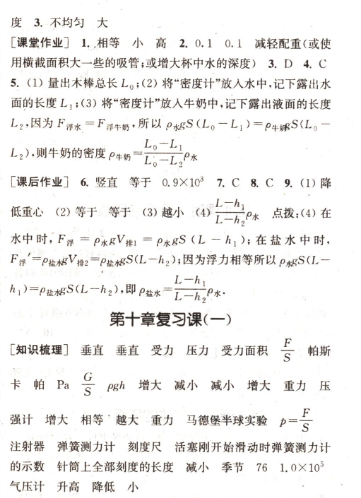 度 3. 不均匀 大
[课堂作业] 1. 相等 小 高 2. 0.1 0.1 减轻配重(或使
用横截面积大一些的吸管;或增大杯中水的深度) 3. D 4. C
5. (1) 量出木棒总长 L₀;(2) 将“密度计”放入水中,记下露出水
面的长度 L₁;(3) 将“密度计”放入牛奶中,记下露出液面的长度
L₂,因为 F浮水 = F浮牛奶,所以 ρ水gS(L₀ - L₁) = ρ牛奶gS(L₀ -
L₂),则牛奶的密度 ρ牛奶 = (L₀ - L₁)/(L₀ - L₂) ρ水
[课后作业] 6. 竖直 等于 0.9×10³ 7. C 8. C 9. (1) 降
低重心 (2) 等于 等于 (3) 越小 (4) (L - h₁)/(L - h₂) ρ水 点拨:(4) 在
水中时,F浮 = ρ水gV排1 = ρ水gS(L - h₁);在盐水中时,
F浮′ = ρ盐水gV排2 = ρ盐水gS(L - h₂);因为浮力相等所以 ρ水gS(L -
h₁) = ρ盐水gS(L - h₂),即 ρ盐水 = (L - h₁)/(L - h₂) ρ水.
第十章复习课(一)
[知识梳理] 垂直 垂直 受力 压力 受力面积 F/S 帕斯
卡 帕 Pa G/S ρgh 增大 减小 减小 增大 重力 压
强计 增大 相等 越大 重力 马德堡半球实验 p = F/S
注射器 弹簧测力计 刻度尺 活塞刚开始滑动时弹簧测力计
的示数 针筒上全部刻度的长度 减小 季节 76 1.0×10⁵
气压计 升高 降低 小